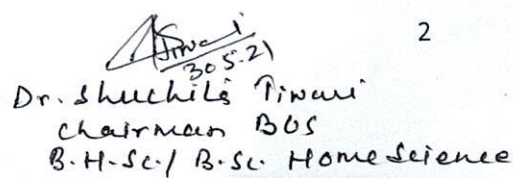 2
Tiwari
30.5.21
Dr. Shuchita Tiwari
Chairman BOS
B.H-Sc./ B.Sc. Home Science